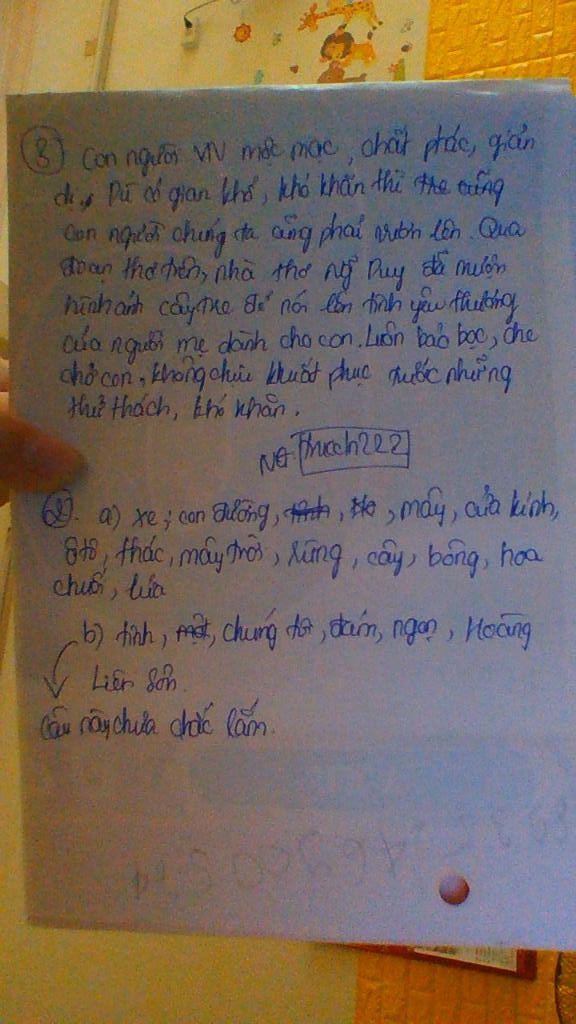 8 Con người VN mộc mạc, chất phác, giản
dị. Dù có gian khổ, khó khăn thì tre cũng
con người chúng ta cũng phải vươn lên. Qua
đoạn thơ trên, nhà thơ Ng̃ Duy đã mượn
hình ảnh cây tre để nói lên tình yêu thương
của người mẹ dành cho con. Luôn bảo bọc, che
chở con, không chịu khuất phục trước những
thử thách, khó khăn.
thucch222
a) xe, con đường, mây, cửa kính,
ô tô, thác, mây trời, rừng, cây, bông, hoa
chuối, lửa
b) tỉnh, một, chúng tôi, đám, ngọn, Hoàng
Liên Sơn.
Câu này chưa chắc lắm.